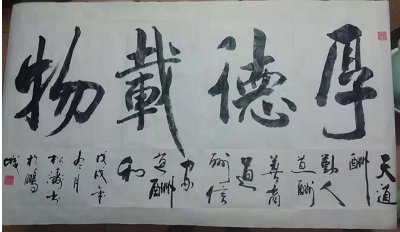 厚德載物
天道
酬
勤人
道酬
善商
道
酬信
家
道酬
和
戊戌年
冬月
松涛书
於鹏
城